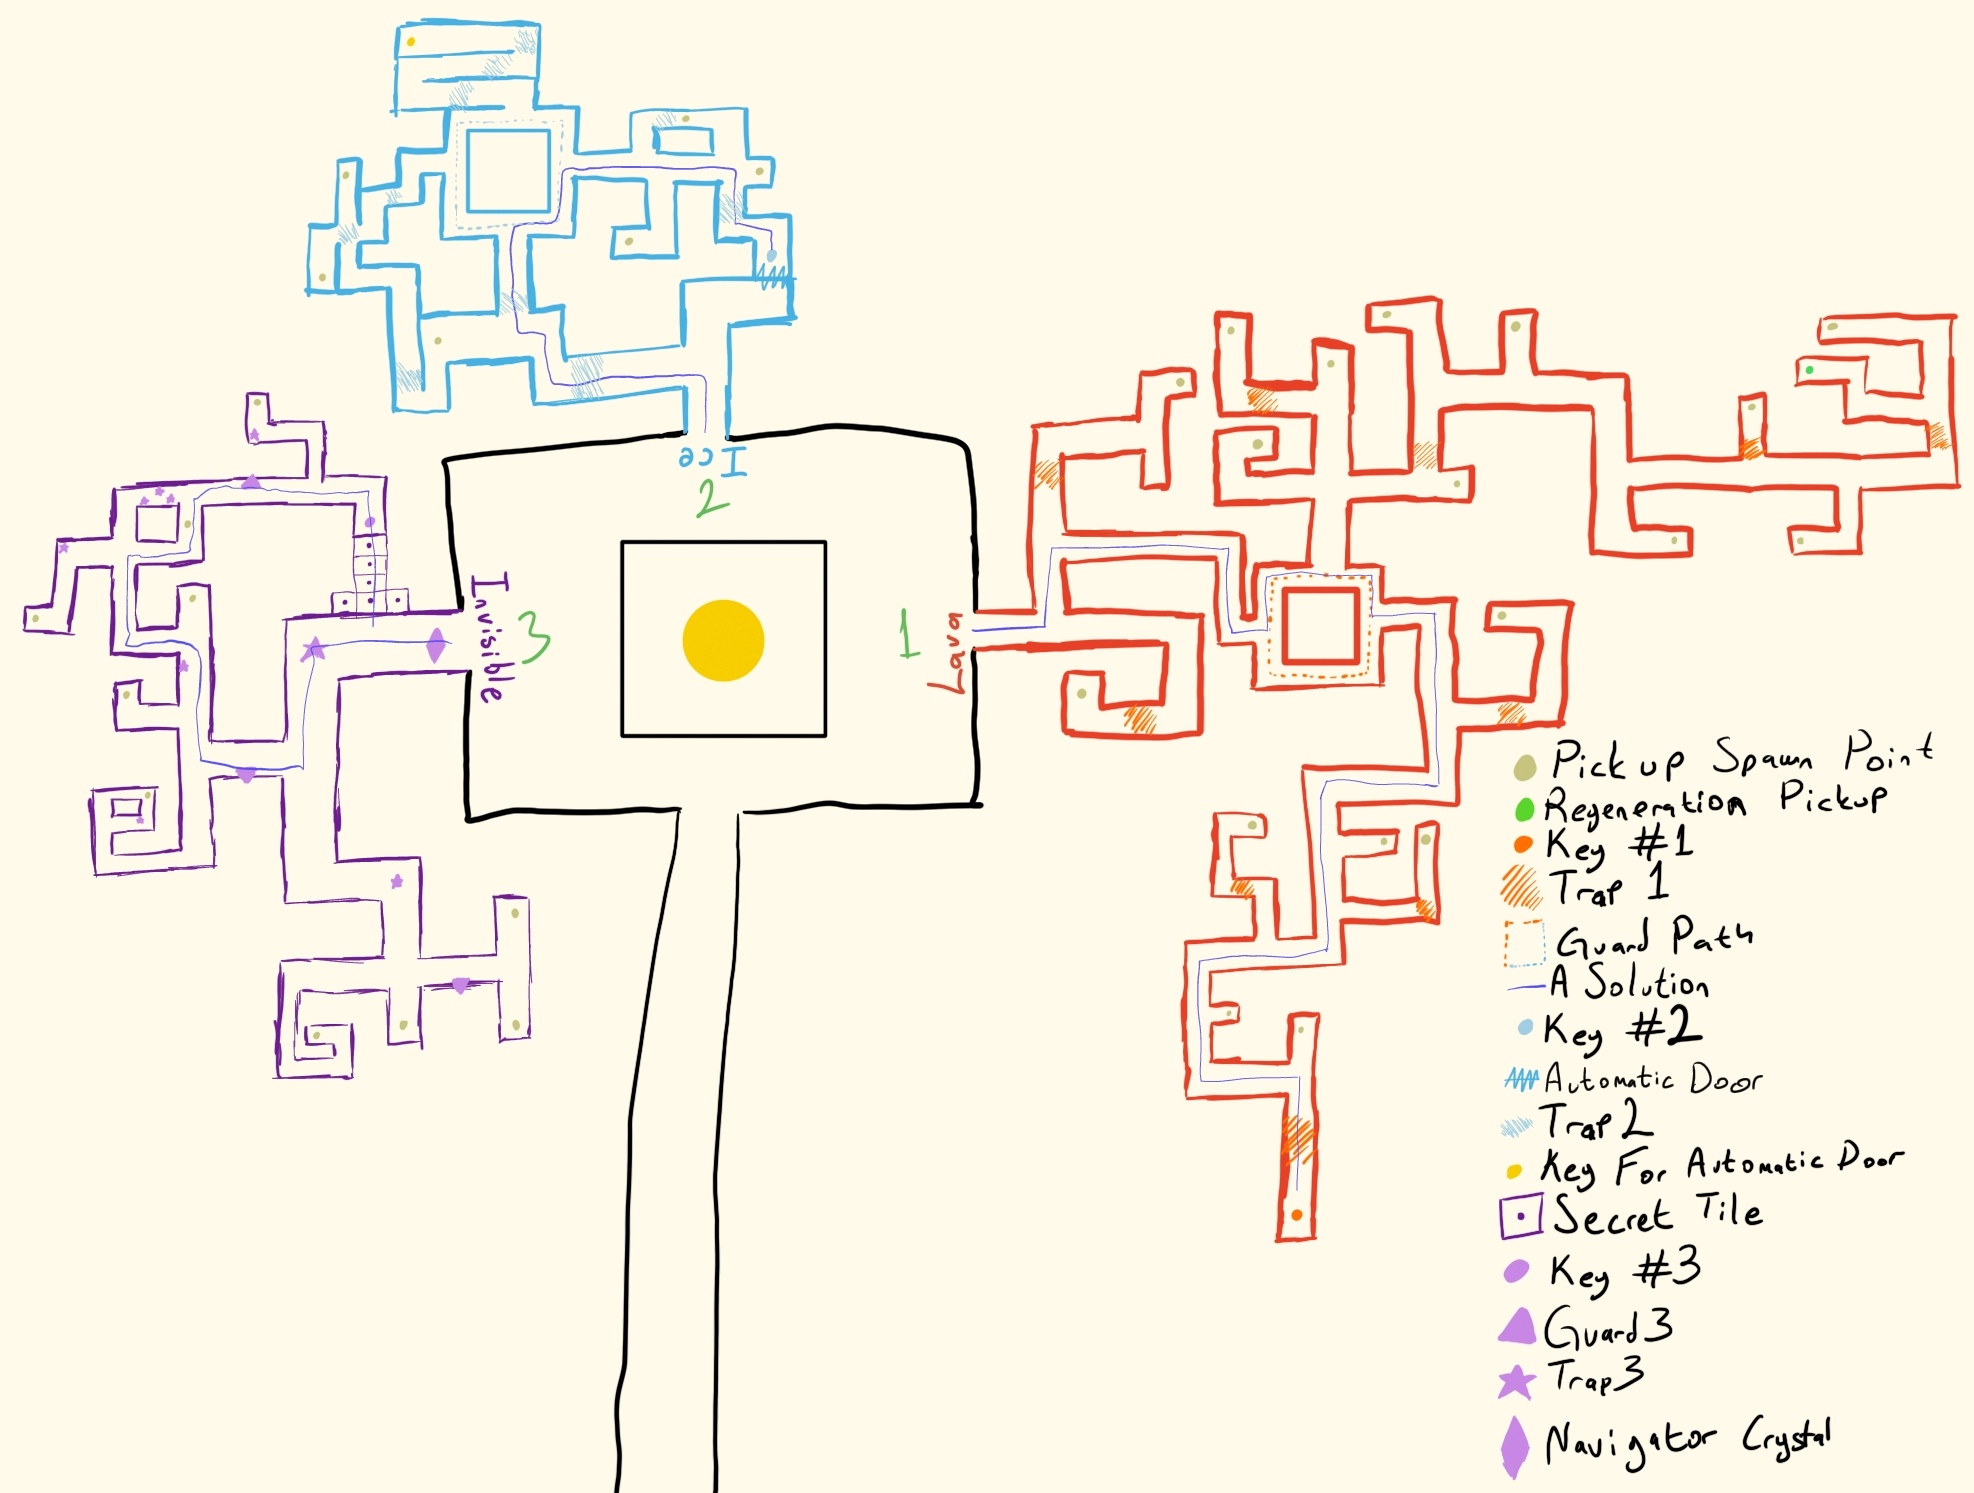 Ice
2
Invisible
3
1
Lava
Pick up Spawn Point
Regeneration Pickup
Key #1
Trap 1
Guard Path
A Solution
Key #2
Automatic Door
Trap 2
Key For Automatic Door
Secret Tile
Key #3
Guard 3
Trap 3
Navigator Crystal